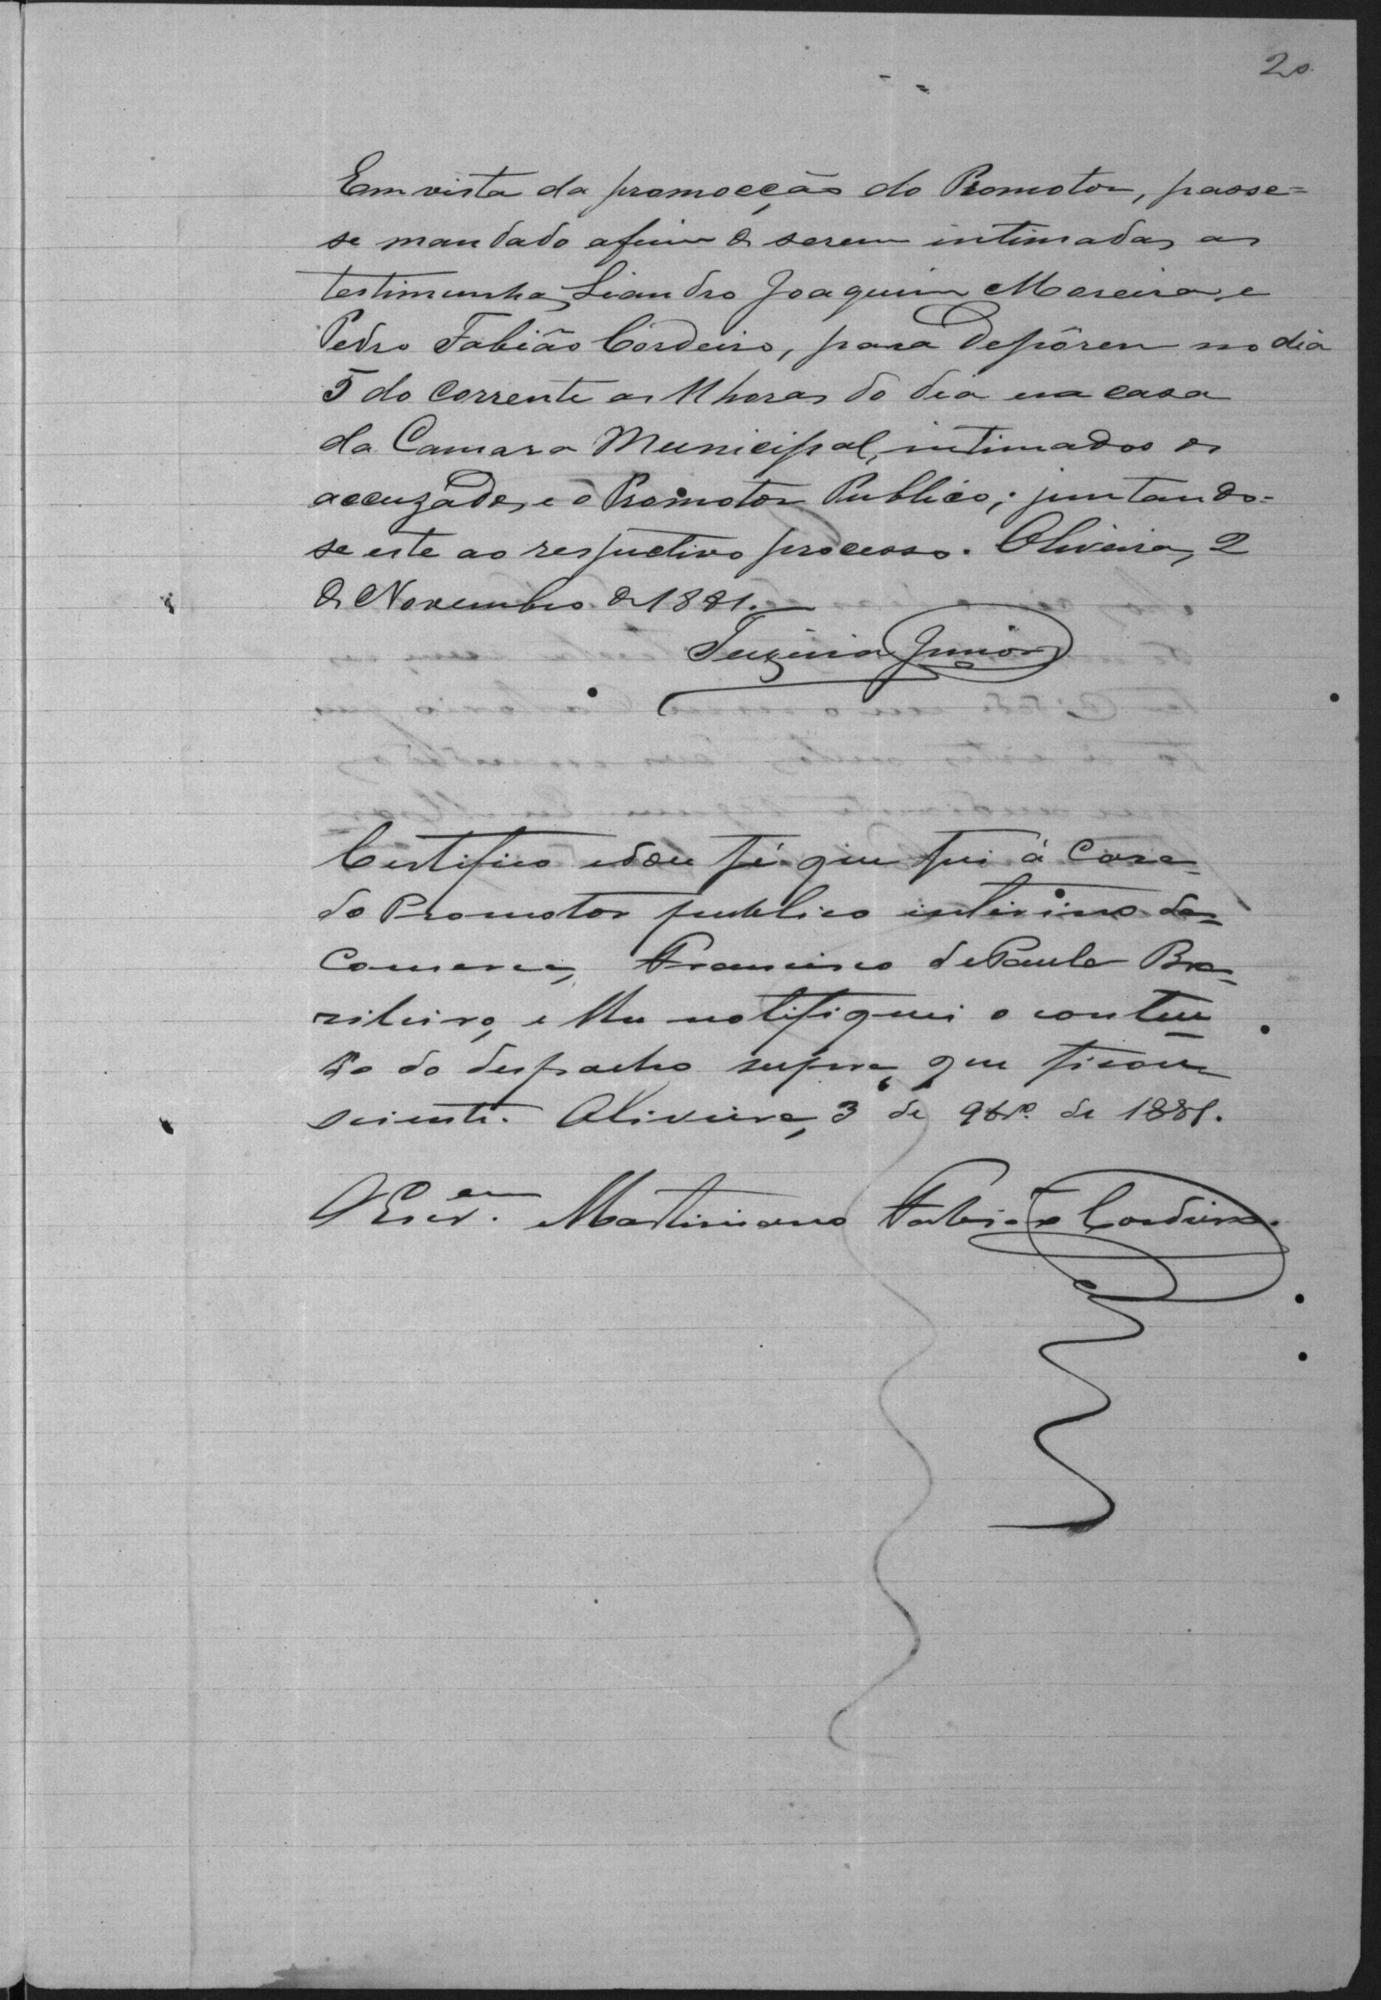 20
Em vista da promocção do Promotor, passe=
se mandado afim de serem intimadas as
testimunhas Liandro Joaquim Moreira, e
Pedro Fabião Cordeiro, para depôrem no dia
5 do corrente as 11 horas do dia na casa
da Camara Municipal, intimados os
accuzados, e o Promotor Publico; juntando-
se este ao respectivo processo. Oliveira, 2
de Novembro de 1881.
Junior
Certifico e dou fé que fui á casa
do Promotor publico interino da
Comarca, Francisco de Paula Bra-
zileiro, e lhe notifiquei o conteu
do do despacho supra, que ficou
sciente. Oliveira, 3 de 9br.o de 1881.
O Escr.am Martiniano Fabião Cordeiro.